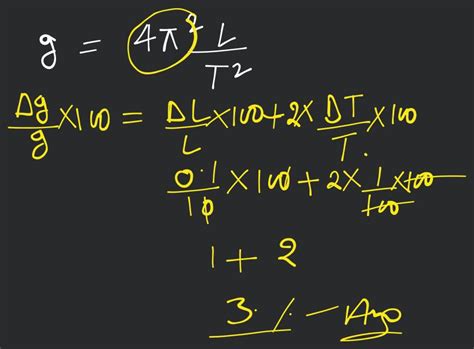 g = 4π² L/T²
Δg/g × 100 = ΔL/L × 100 + 2 × ΔT/T. × 100
0.1/10 × 100 + 2 × 1/100 × 100
1 + 2
3 % - Ans